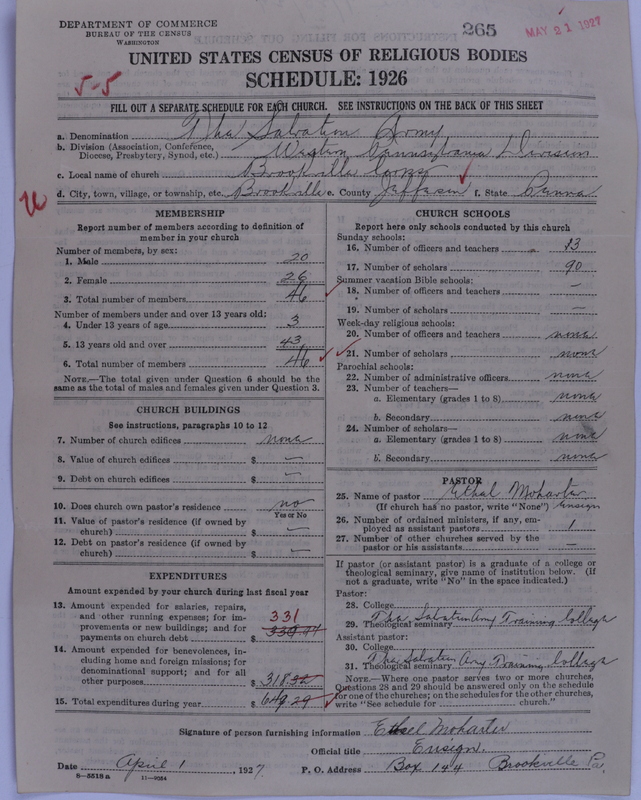 DEPARTMENT OF COMMERCE
BUREAU OF THE CENSUS
WASHINGTON
265
MAY 21 1927
UNITED STATES CENSUS OF RELIGIOUS BODIES
SCHEDULE: 1926
5-5
FILL OUT A SEPARATE SCHEDULE FOR EACH CHURCH. SEE INSTRUCTIONS ON THE BACK OF THIS SHEET
a. Denomination The Salvation Army
b. Division (Association, Conference, Diocese, Presbytery, Synod, etc.) Western Pennsylvania Division
c. Local name of church Brookville Corps
d. City, town, village, or township, etc. Brookville e. County Jefferson f. State Penna
MEMBERSHIP
Report number of members according to definition of member in your church
Number of members, by sex:
1. Male 20
2. Female 26
3. Total number of members 46
Number of members under and over 13 years old:
4. Under 13 years of age 3
5. 13 years old and over 43
6. Total number of members 46
NOTE.—The total given under Question 6 should be the same as the total of males and females given under Question 3.
CHURCH BUILDINGS
See instructions, paragraphs 10 to 12
7. Number of church edifices none
8. Value of church edifices $ —
9. Debt on church edifices $ —
10. Does church own pastor's residence no
Yes or No
11. Value of pastor's residence (if owned by church) $ —
12. Debt on pastor's residence (if owned by church) $ —
EXPENDITURES
Amount expended by your church during last fiscal year
13. Amount expended for salaries, repairs, and other running expenses; for improvements or new buildings; and for payments on church debt $ 331
14. Amount expended for benevolences, including home and foreign missions; for denominational support; and for all other purposes $ 318.32
15. Total expenditures during year $ 649.29
CHURCH SCHOOLS
Report here only schools conducted by this church
Sunday schools:
16. Number of officers and teachers 13
17. Number of scholars 90
Summer vacation Bible schools:
18. Number of officers and teachers —
19. Number of scholars —
Week-day religious schools:
20. Number of officers and teachers none
21. Number of scholars none
Parochial schools:
22. Number of administrative officers none
23. Number of teachers—
a. Elementary (grades 1 to 8) none
b. Secondary none
24. Number of scholars—
a. Elementary (grades 1 to 8) none
b. Secondary none
PASTOR
25. Name of pastor Ethel Moharter
(If church has no pastor, write "None") Ensign
26. Number of ordained ministers, if any, employed as assistant pastors 1
27. Number of other churches served by the pastor or his assistants —
If pastor (or assistant pastor) is a graduate of a college or theological seminary, give name of institution below. (If not a graduate, write "No" in the space indicated.)
Pastor:
28. College
29. Theological seminary The Salvation Army Training College
Assistant pastor:
30. College
31. Theological seminary The Salvation Army Training College
NOTE.—Where one pastor serves two or more churches, Questions 28 and 29 should be answered only on the schedule for one of the churches; on the schedules for the other churches, write "See schedule for ............ church."
Signature of person furnishing information Ethel Moharter
Official title Ensign.
Date April 1, 1927 P. O. Address Box 144 Brookville Pa.
8—5518 a 11—9564